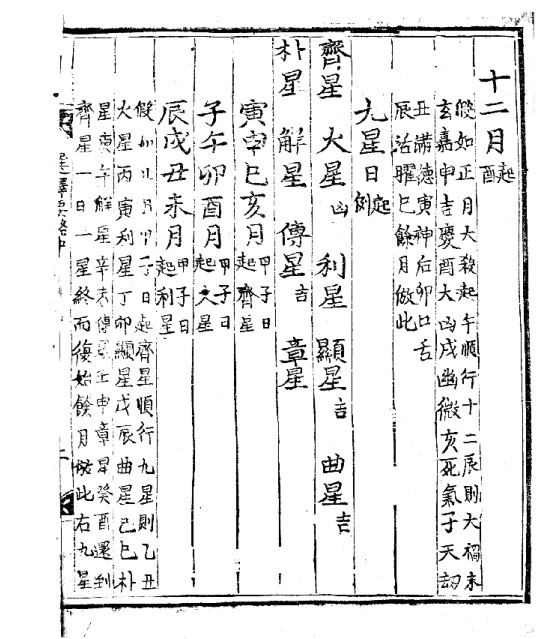 十二月起酉
假如正月大殺起午順行十二辰則大禍未
玄嘉申吉慶酉大凶戌幽微亥死氣子天劫
丑滿德寅神后卯口舌
辰治曜巳餘月倣此
九星日起例
齊星 火星凶 利星 顯星吉 曲星吉
朴星 解星 傳星吉 章星
寅申巳亥月甲子日起齊星
子午卯酉月甲子日起火星
辰戌丑未月甲子日起利星
假如正月甲子日起齊星順行九星則乙丑
火星丙寅利星丁卯顯星戊辰曲星己巳朴
星庚午解星辛未傳星壬申章星癸酉還到
齊星一日一星終而復始餘月倣此右九星
選擇要略中
二